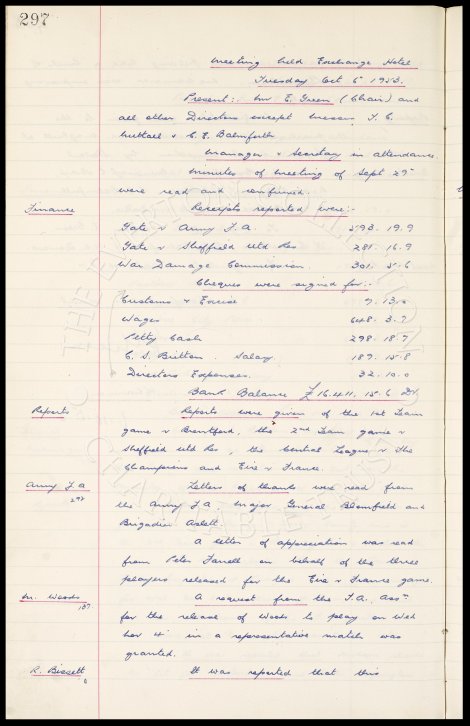 297
Meeting held Exchange Hotel
Tuesday Oct 6 1953.
Present:- Mr E. Green (Chair) and
all other Directors except Messrs J. C.
Nuttall & C. E. Balmforth
Manager & Secretary in attendance.
Minutes of Meeting of Sept 29th
were read and confirmed.
Finance
Receipts reported were:-
Gate v Army F.A. 593. 19. 9
Gate v Sheffield Utd Res 281. 16. 9
War Damage Commission. 301. 5. 6
Cheques were signed for:-
Customs & Excise 9. 13. 0
Wages 648. 3. 7
Petty Cash 298. 18. 7
C. S. Britton. Salary. 189. 15. 8
Directors Expenses. 32. 10. 0
Bank Balance £ 16.411. 15. 6 Dr
Reports
Reports were given of the 1st Team
game v Brentford, the 2nd Team game v
Sheffield Utd Res, the Central League v The
Champions and Eire v France.
Army F.A
297
Letters of thanks were read from
the Army F.A Major General Blomfield and
Brigadier Aslett.
A letter of appreciation was read
from Peter Farrell on behalf of the three
players released for the Eire v France game.
M. Woods
A request from the F.A. Assn
for the release of Woods to play on Wed
Nov 4th in a representative match was
granted.
R. Bissett
It was reported that this
THE EVERTON COLLECTION
CHARITABLE TRUST